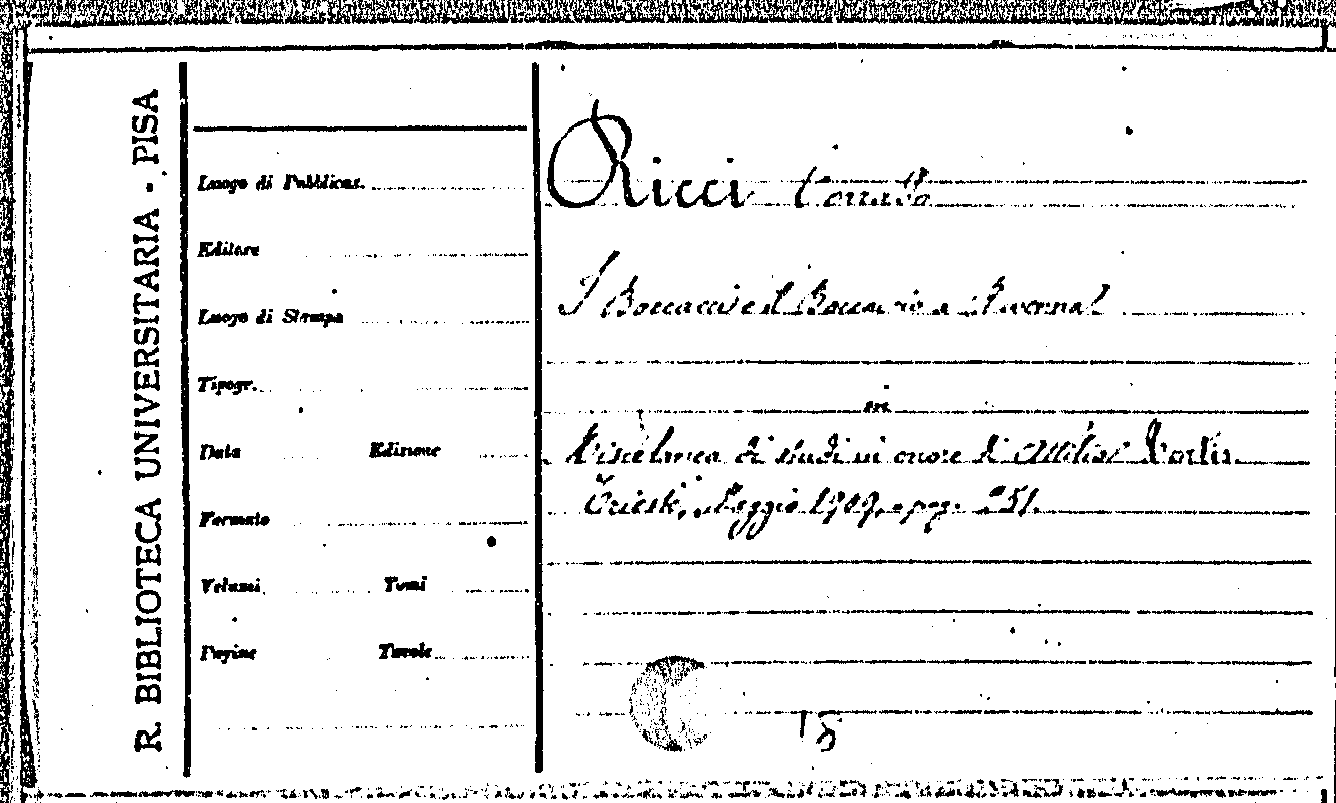 R. BIBLIOTECA UNIVERSITARIA - PISA
Luogo di Pubblicaz.
Editore
Luogo di Stampa
Tipogr.
Data Edizione
Formato
Volumi Tomi
Pagine Tavole
Ricci Corrado
I Boccacci e il Boccaccio a Ravenna
in
Miscelanea di studi in onore di Attilio Hortis
Trieste, Maggio 1909, a pag. 251.